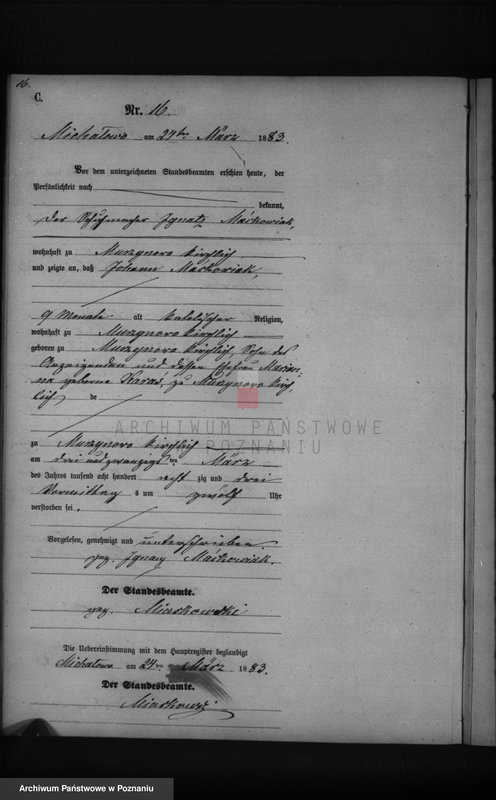 16.
C.
Nr. 16.
Michalowo am 24ten März 1883.
Vor dem unterzeichneten Standesbeamten erschien heute, der
Persönlichkeit nach
bekannt,
der Schuhmacher Ignatz Maćkowiak,
wohnhaft zu Murzynowo kirchlich
und zeigte an, daß Johann Maćkowiak,
9 Monate alt katolischer Religion,
wohnhaft zu Murzynowo kirchlich
geboren zu Murzynowo kirchlich, Sohn des
Anzeigenden und dessen Ehefrau Marian-
na geborne Karas, zu Murzynowo kirch-
lich
ARCHIWUM PAŃSTWOWE
W POZNANIU
zu Murzynowo kirchlich
am drei und zwanzigsten März
des Jahres tausend acht hundert acht zig und drei
Vormittag s um zwölf Uhr
verstorben sei.
Vorgelesen, genehmigt und unterschrieben
gez. Ignacy Maćkowiak.
Der Standesbeamte.
gez. Miaskowski
Die Uebereinstimmung mit dem Hauptregister beglaubigt
Michalowo am 24ten März 1883.
Der Standesbeamte.
Miaskowski
Archiwum Państwowe w Poznaniu